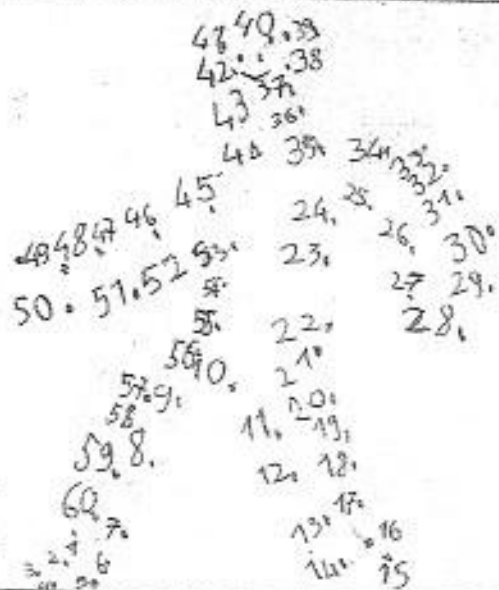 48 40. 39
42. .38
43 37.
36.
44 35. 34. 33.
32.
45 24. 25. 31.
49 48 47 46 26. 30.
50. 51. 52 53. 23. 27 29.
54. 28.
55. 22.
56. 10. 21.
57. 9. 20.
58 11. 19.
59. 8. 12. 18.
60. 17.
7. 13. 16
3. 2. 1 6 14. 15
5.